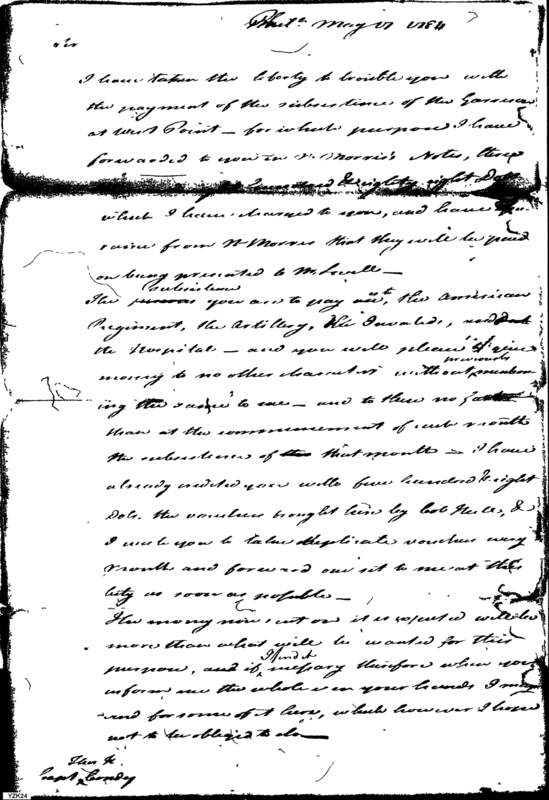 Phila May 17 1784
Sir
I have taken the liberty to trouble you with
the payment of the subsistence of the Garrison
at West Point – for which purpose I have
forwarded to you in Mr Morris's Notes, three
thousand & eighty eight Dolls
which I have charged to you, and have
from Mr Morris that they will be paid
on being presented to Mr Lovell –
subsistence
The you are to pay is to, the American
Regiment, the Artillery, the Invalids, and
the Hospital – and you will please to give
previously
money to no other characters without
ing the same to me – and to these no
than at the commencement of each month
the subsistence of that month – I have
already credited you with five hundred & eight
Dols. the vouchers brought here by Col &
I wish you to take duplicate vouchers every
Month and forward one set to me at this
City as soon as possible –
The money now sent on it is expected will be
more than what will be wanted for this
I find it
purpose, and if necessary therefore when you
inform me the whole is in your hands I may
send for some of it here, which however I hope
not to be obliged to do –
Capt
YZK24